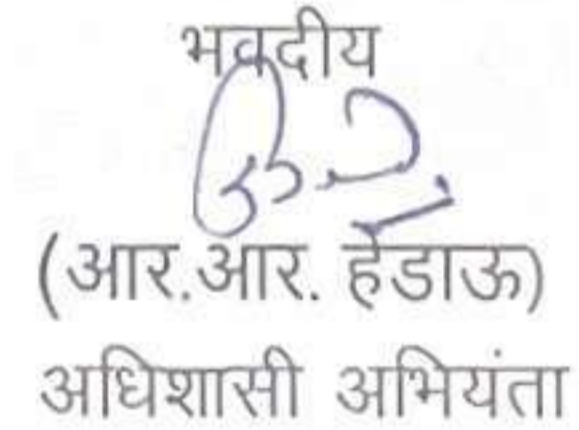 भवदीय
(आर.आर. हेडाऊ)
अधिशासी अभियंता